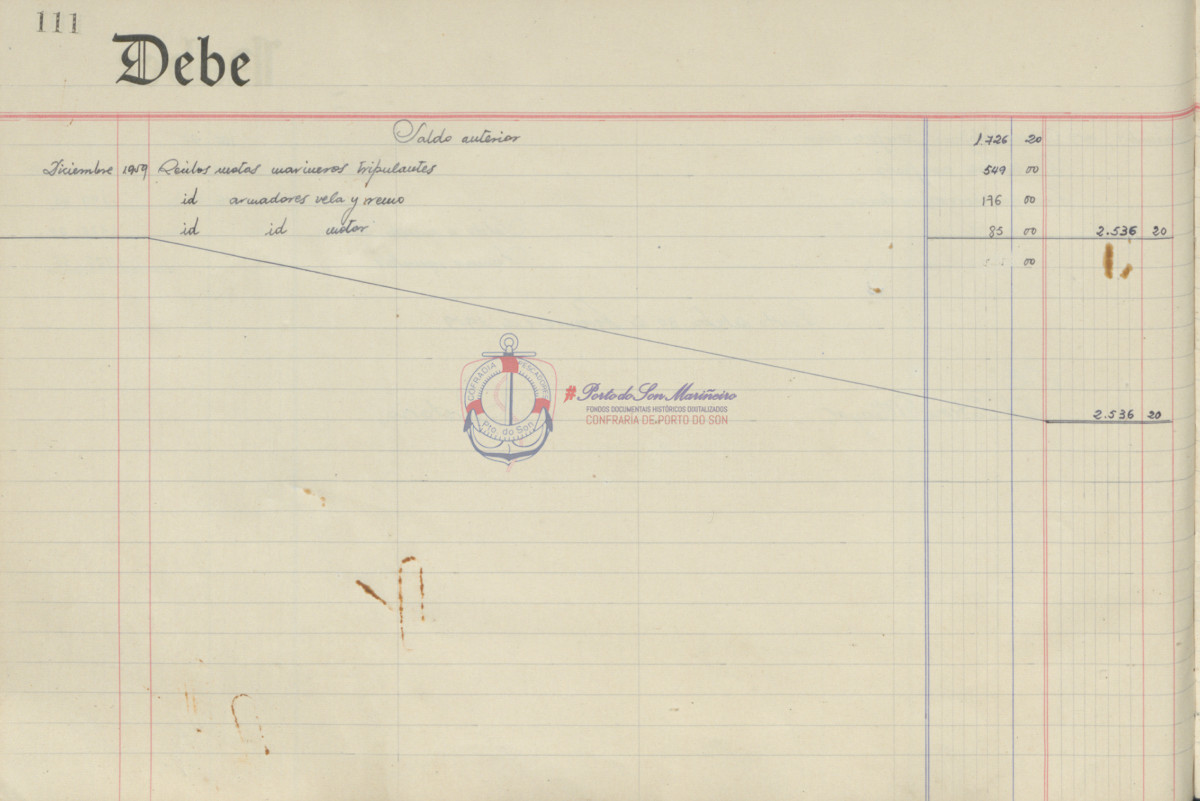 111
Debe
Saldo anterior 1.726 20
Diciembre 1959 Recibos cuotas marineros tripulantes 549 00
id armadores vela y remo 176 00
id id motor 85 00 2.536 20
00
COFRADIA PESCADORES
Pto. do Son
#Porto do Son Mariñeiro
FONDOS DOCUMENTAIS HISTÓRICOS DIXITALIZADOS
CONFRARÍA DE PORTO DO SON
2.536 20